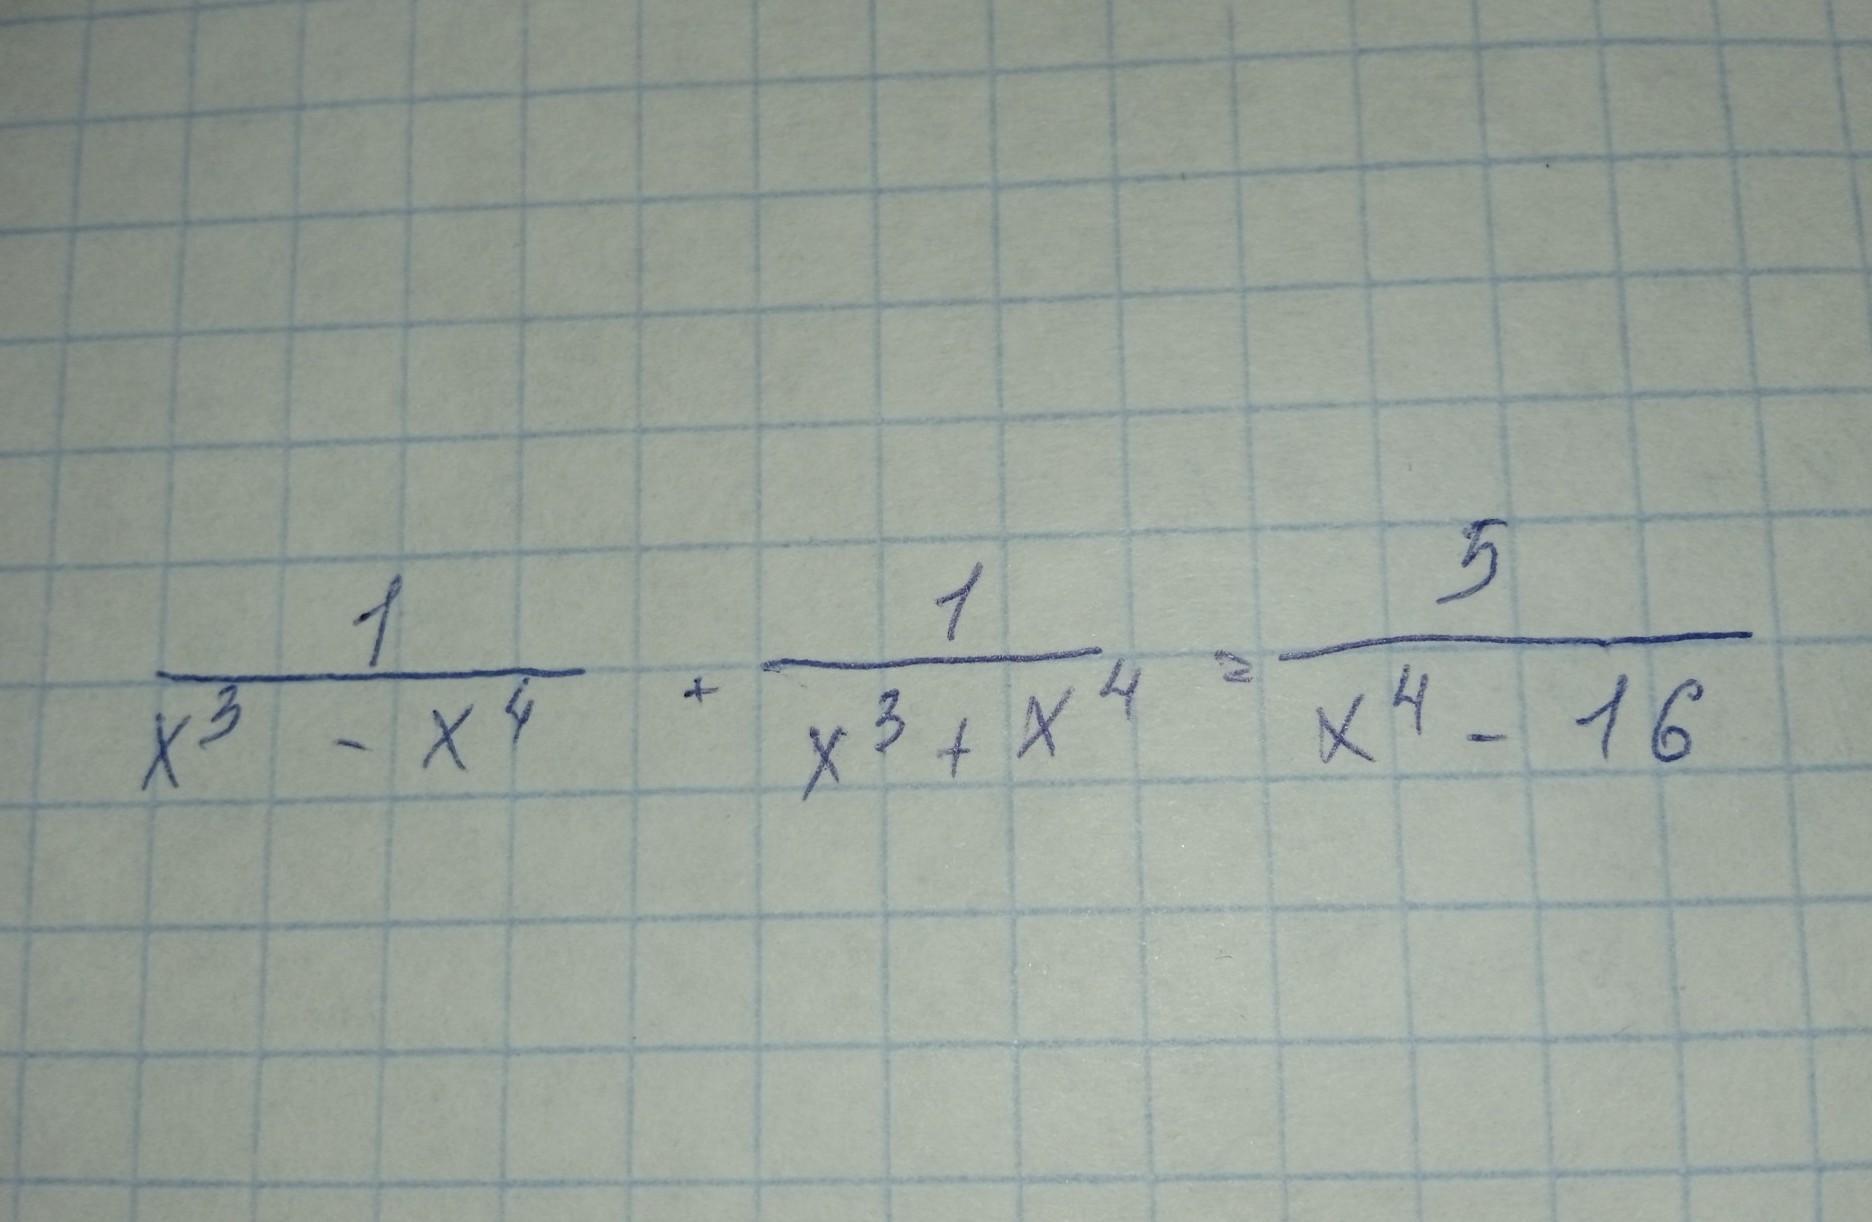 1/(x³ - x⁴) + 1/(x³ + x⁴) = 5/(x⁴ - 16)